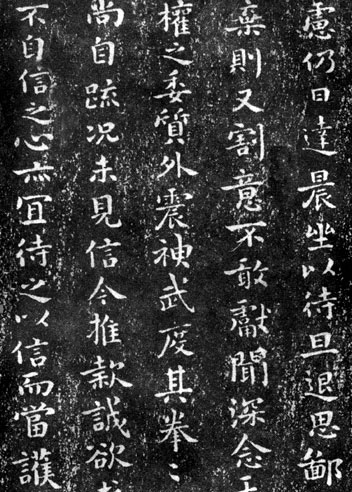 慮仍日達晨坐以待旦退思鄙
棄則又割意不敢獻聞深念天
權之委質外震神武度其拳〻
尚自疏況未見信今推款誠欲求
不自信之心亦宜待之以信而當護